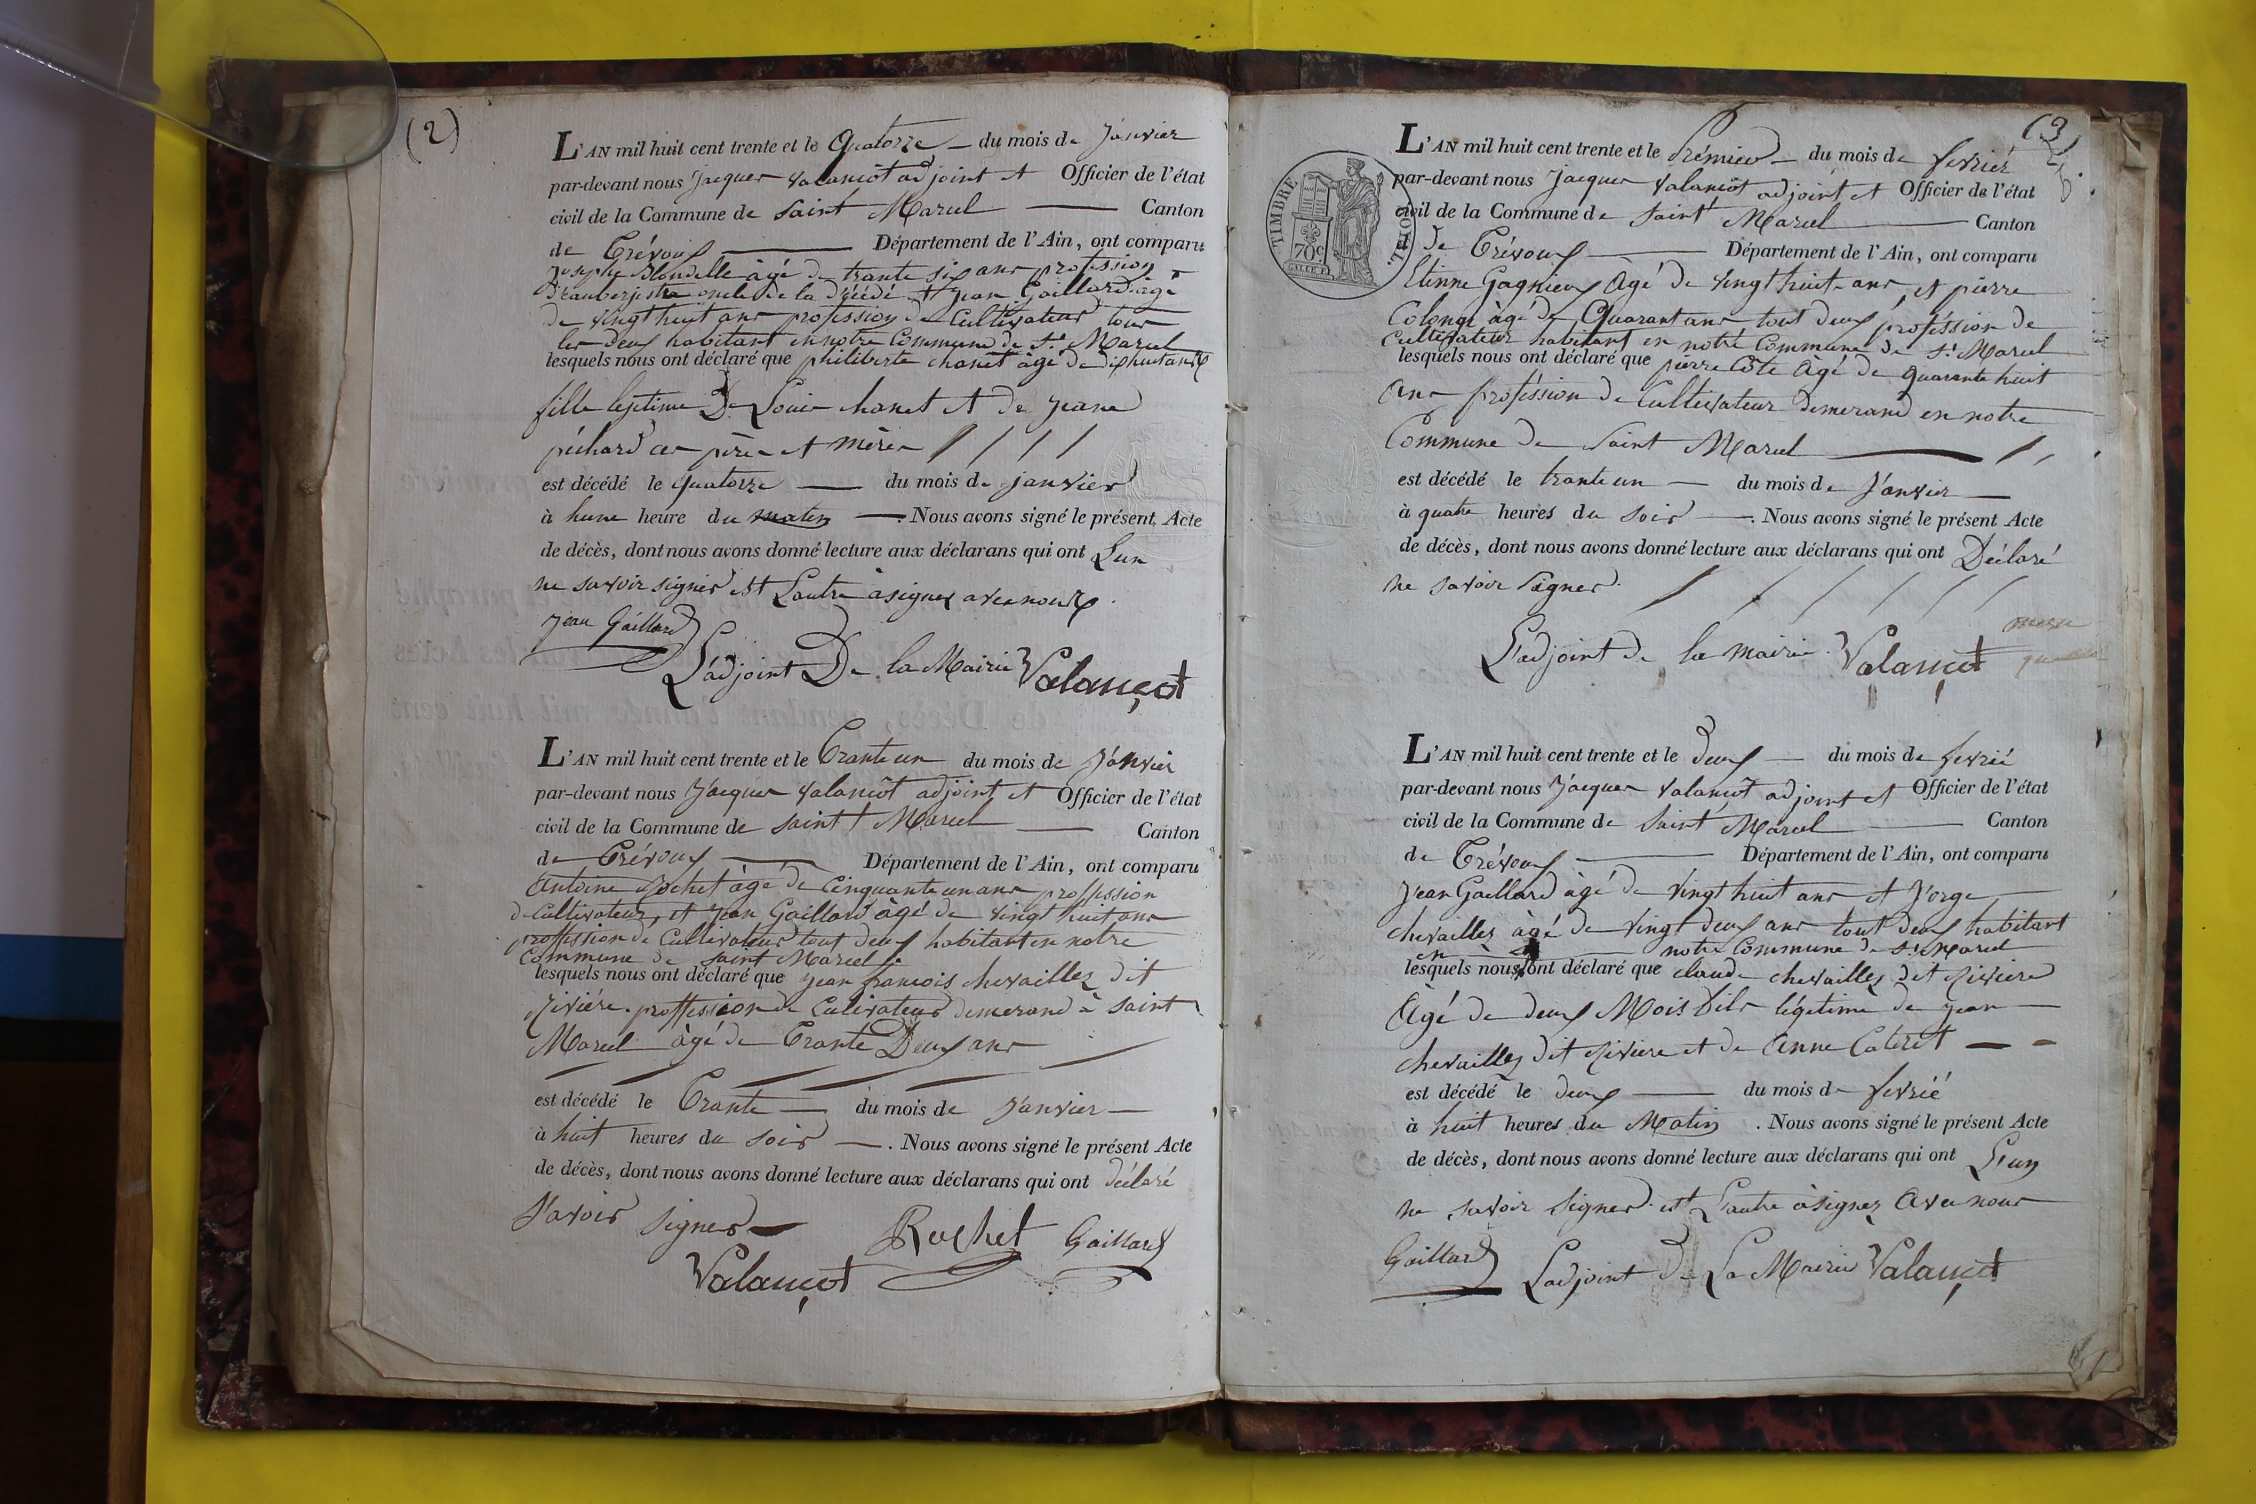 (2)
L'AN mil huit cent trente et le quatorze du mois de Janvier
par-devant nous Jacques valancôt adjoint et Officier de l'état
civil de la Commune de Saint Marcel Canton
de Trévoux Département de l'Ain, ont comparu
Joseph Blondelle âgé de trante six ans profession
d'auberjiste oncle de la décédé et Jean Gaillard agé
de vingt huit ans profession de Cultivateur tous
les deux habitant en notre Commune de St Marcel
lesquels nous ont déclaré que philiberte chanet âgé de dixhuit ans
fille lejitime De Louis chanet et de jeane
péchard ces père et mère
est décédé le quatorze du mois de janvier
à hune heure du matin . Nous avons signé le présent Acte
de décès, dont nous avons donné lecture aux déclarans qui ont Lun
ne savoir signer et Lautre à signer avec nous
jean Gaillard
L'adjoint De la Mairie Valançot
L'AN mil huit cent trente et le Trante un du mois de Janvier
par-devant nous Jacques valancôt adjoint et Officier de l'état
civil de la Commune de Saint Marcel Canton
de Trévoux Département de l'Ain, ont comparu
Antoine Rochet âgé de Cinquante un ans proffession
de Cultivateur, et jean Gaillard âgé de vingt huit ans
proffession de Cultivateur tout deux habitant en notre
Commune de Saint Marcel
lesquels nous ont déclaré que jean francois chevaillez dit
Riviére proffession de Cultivateur demerand à Saint
Marcel âgé de Trante Deux ans
est décédé le Trante du mois de Janvier
à huit heures du Soir . Nous avons signé le présent Acte
de décès, dont nous avons donné lecture aux déclarans qui ont déclaré
Savoir signer
Rochet Gaillard
Valançot
(3)
TIMBRE ROYAL.
70c.
L'AN mil huit cent trente et le Prémier du mois de fevrier
par-devant nous Jacques valancôt adjoint et Officier de l'état
civil de la Commune de Saint Marcel Canton
de Trévoux Département de l'Ain, ont comparu
Etienne Gagnieux âgé de vingt huit ans et pierre
Colonge âgé de Quarant ans tout deux profession de
Cultivateur habitant en notre Commune de St Marcel
lesquels nous ont déclaré que pierre Côte âgé de quarante huit
ans profession de Cultivateur demerand en notre
Commune de Saint Marcel
est décédé le trante un du mois de Janvier
à quatre heures du soir . Nous avons signé le présent Acte
de décès, dont nous avons donné lecture aux déclarans qui ont Déclaré
ne savoir signer.
L'adjoint de la mairie Valançot
L'AN mil huit cent trente et le deux du mois de fevrié
par-devant nous Jacques valancôt adjoint et Officier de l'état
civil de la Commune de Saint Marcel Canton
de Trévoux Département de l'Ain, ont comparu
Jean Gaillard âgé de vingt huit ans et Jorge
chevaillez âgé de vingt deux ans tout deux habitant
en notre Commune de St Marcel
lesquels nous ont déclaré que claude chevaillez dit Riviere
âgé de deux Mois fils légetime de jean
chevaillez dit Riviere et de Anne Cateret
est décédé le deux du mois de fevrié
à huit heures du Matin . Nous avons signé le présent Acte
de décès, dont nous avons donné lecture aux déclarans qui ont L'un
ne savoir signer et Lautre à signer avec nous
Gaillard Ladjoint De La Mairie Valançot